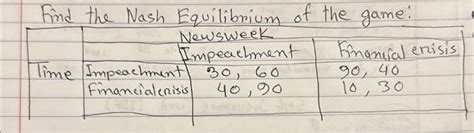 Find the Nash Equilibrium of the game:
Newsweek
Impeachment Financial crisis
Time Impeachment 30, 60 90, 40
Financial crisis 40, 90 10, 30